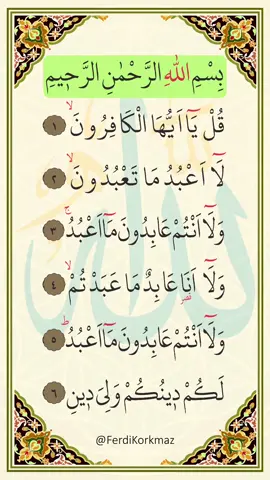 بِسْمِ اللّٰهِ الرَّحْمٰنِ الرَّحٖيمِ
قُلْ يَٓا اَيُّهَا الْكَافِرُونَۙ ١
لَٓا اَعْبُدُ مَا تَعْبُدُونَۙ ٢
وَلَٓا اَنْتُمْ عَابِدُونَ مَٓا اَعْبُدُۚ ٣
وَلَٓا اَنَا۬ عَابِدٌ مَا عَبَدْتُمْۙ ٤
قصر
وَلَٓا اَنْتُمْ عَابِدُونَ مَٓا اَعْبُدُۜ ٥
لَكُمْ دٖينُكُمْ وَلِيَ دٖينِ ٦
@FerdiKorkmaz